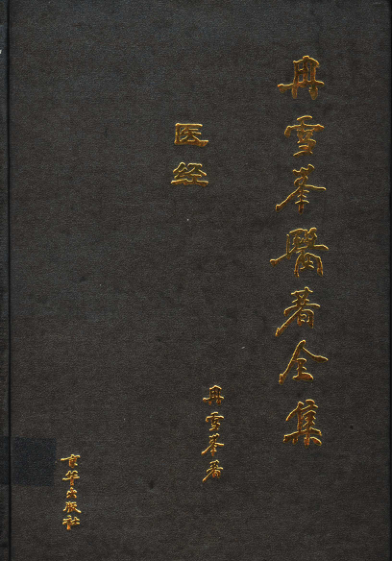 冉雪峯醫著全集
医经
冉雪峯著
京华出版社